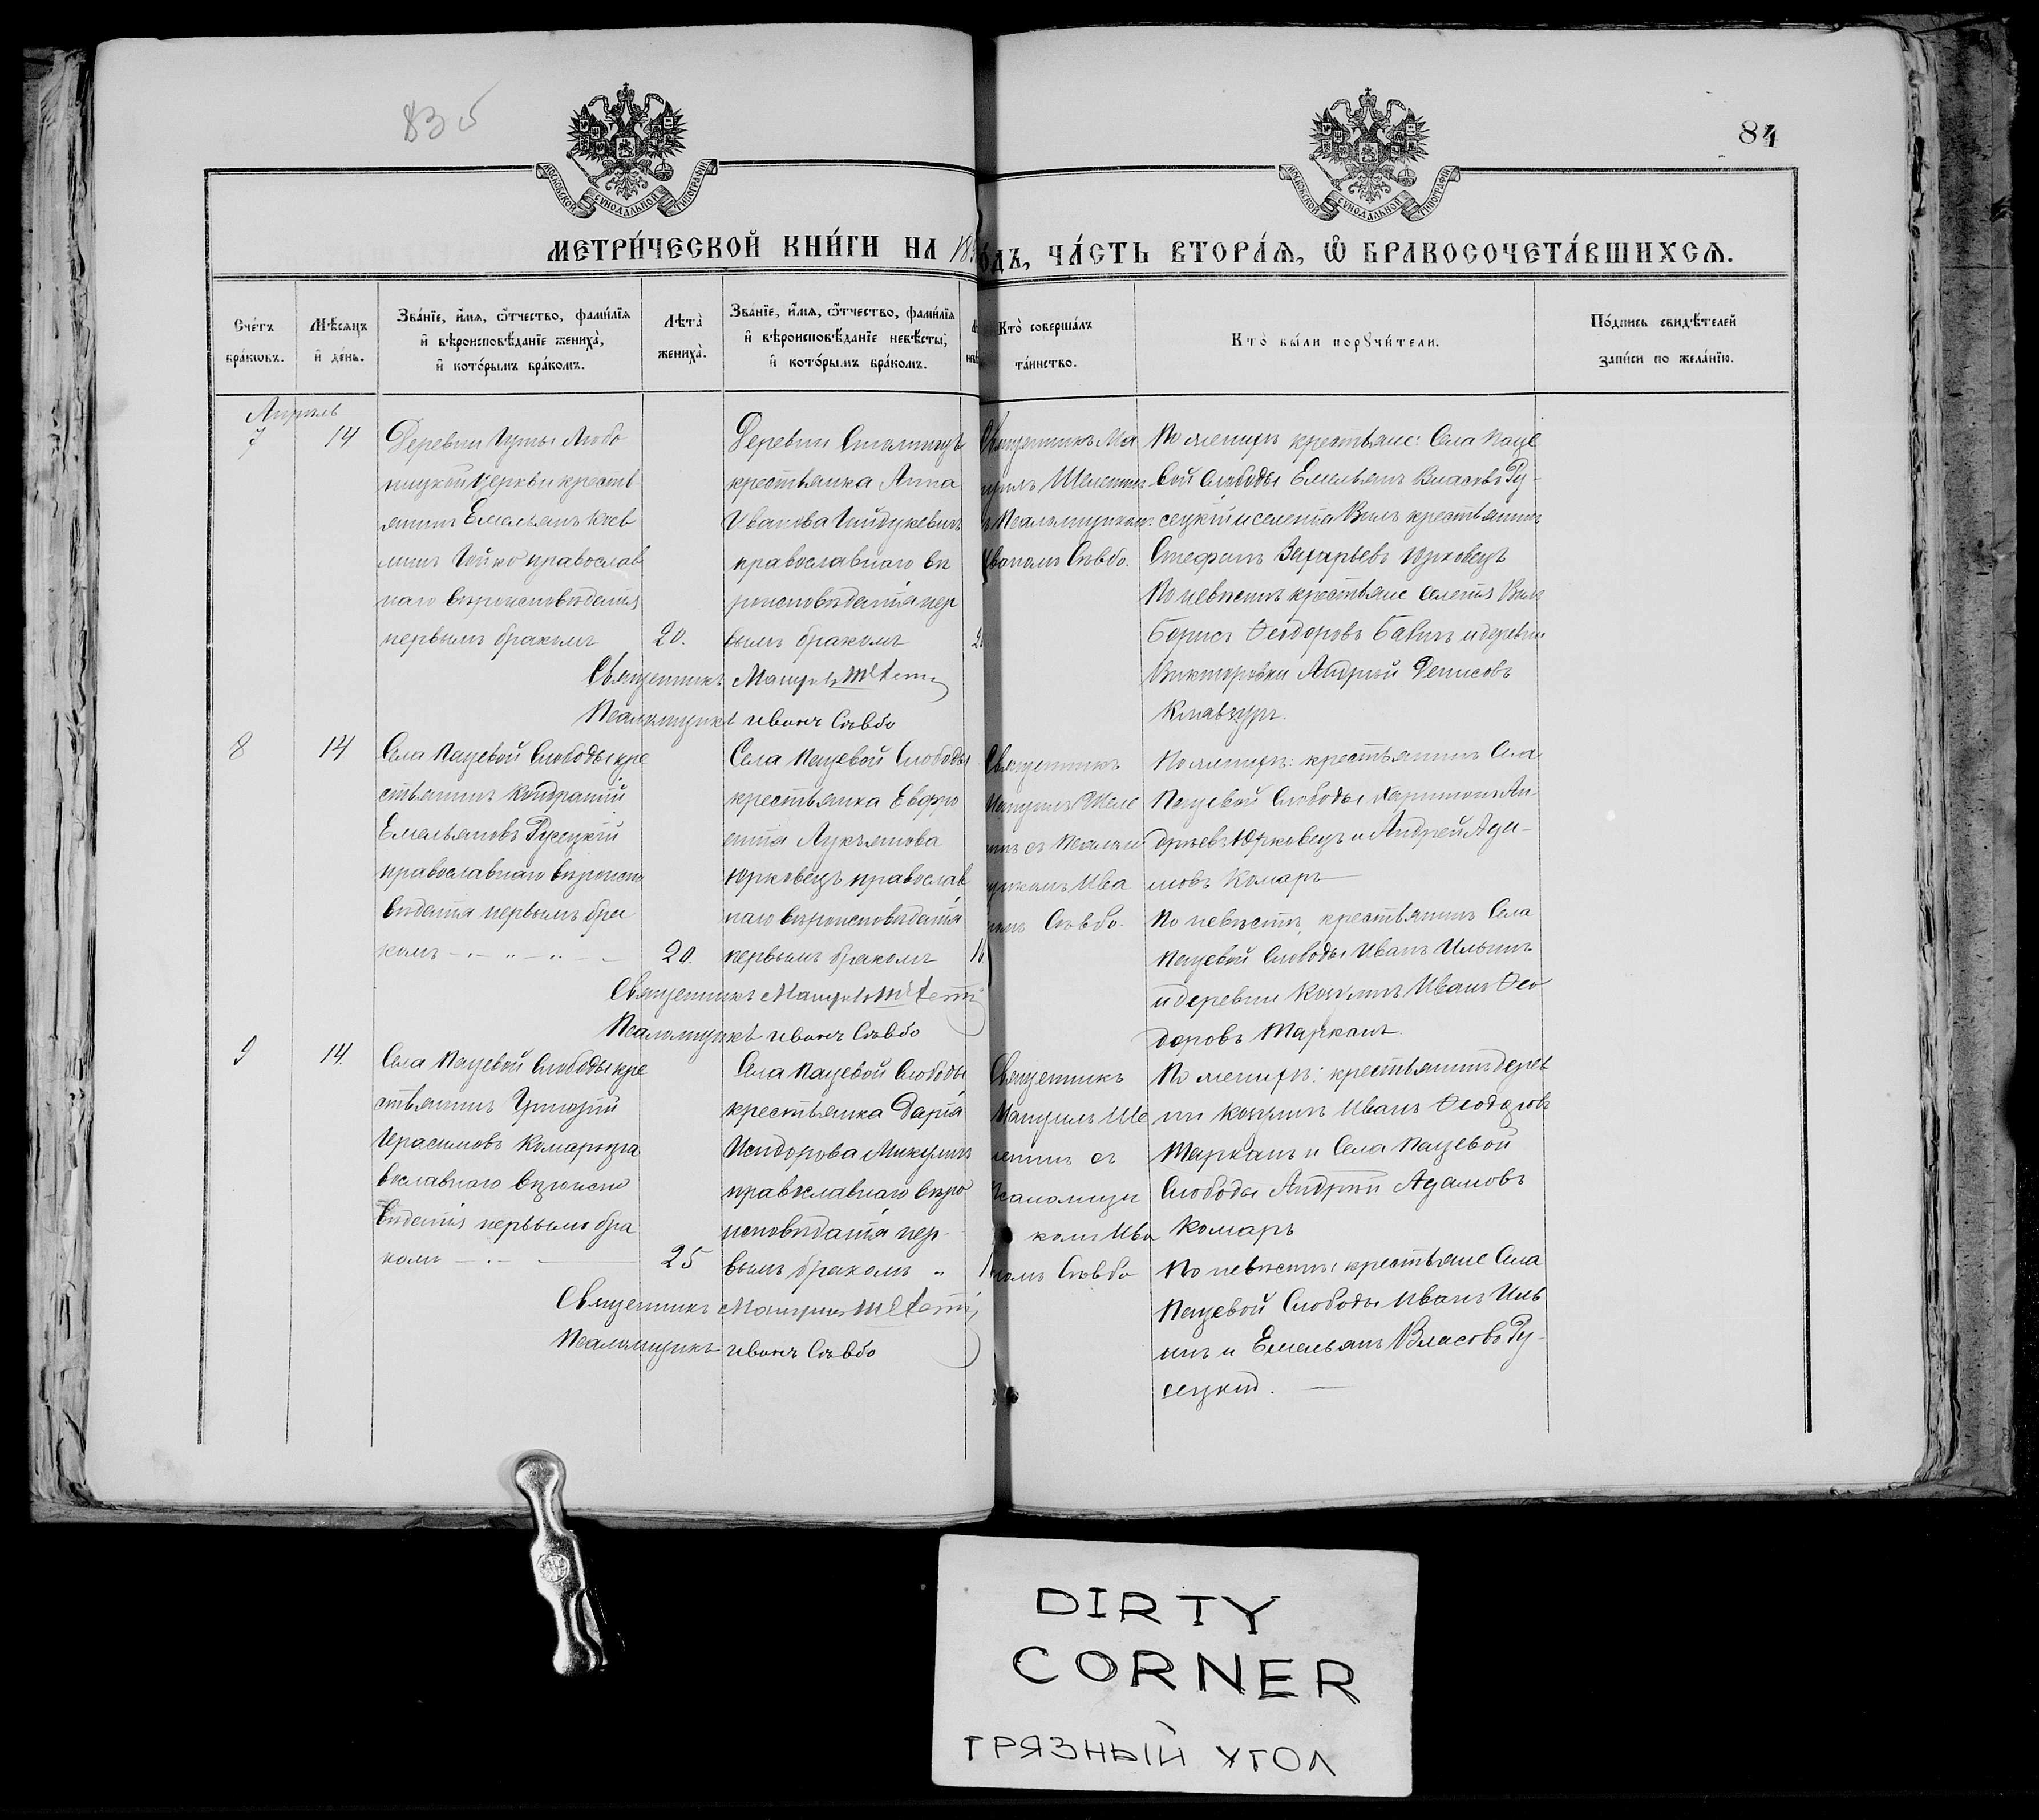 83 об
84
МОСКОВСКОЙ СѴНОДАЛЬНОЙ ТИПОГРАФІИ
МОСКОВСКОЙ СѴНОДАЛЬНОЙ ТИПОГРАФІИ
МЕТРИ́ЧЕСКОЙ КНИ́ГИ НА 18
ОДЪ, ЧА́СТЬ ВТОРА́Ѧ, Ѿ БРАКОСОЧЕТА́ВШИХСѦ.
Сче́тъ бра́ковъ.
Мѣ́сѧцъ и де́нь.
Зва́нїе, и́мѧ, ѻ́тчество, фами́лїѧ
и вѣроисповѣ́данїе жениха̀,
и кото́рымъ бра́комъ.
Лѣта̀ жениха̀.
Зва́нїе, и́мѧ, ѻ́тчество, фами́лїѧ
и вѣроисповѣ́данїе невѣ́сты,
и кото́рымъ бра́комъ.
Кто̀ соверша́лъ
та́инство.
Кто̀ бы́ли порꙋчи́тели.
По́дпись свидѣ́телей
за́писи по жела́нїю.
Апрель
7 14
Деревни Любо
пицкой церкви кресть
янинъ Емельянъ
православ
наго вѣроисповѣданія
первымъ бракомъ
20.
Деревни
крестьянка Анна
Иванова Гайдукевичъ
православнаго вѣ
роисповѣданія пер
вымъ бракомъ
Священникъ Ма
Псаломщикомъ
Иваномъ Сѣвбо.
По женихѣ крестьяне: Села Паце
вой Слободы Емельянъ Власовъ Ру-
сецкій и селенія Вилъ крестьянинъ
Стефанъ Захарьевъ Юрковецъ
По невѣстѣ крестьяне селенія Вилъ
Борисъ Ѳеодоровъ и деревни
Викторовки Андрей Денисовъ
Священникъ
Псаломщикъ Иванъ Сѣвбо
8 14
Села Пацевой Слободы кре
стьянинъ Кондратій
Емельяновъ Русецкій
православнаго вѣроиспо
вѣданія первымъ бра
комъ
20.
Села Пацевой Слободы
крестьянка Евфро
синія Лукъянова
Юрковецъ православ
наго вѣроисповѣданія
первымъ бракомъ
Священникъ
съ Псалом
щикомъ Ива
номъ Сѣвбо.
По женихѣ: крестьянинъ Села
Пацевой Слободы Харитонъ Ан
дреевъ Юрковецъ и Андрей Ада-
мовъ Комаръ
По невѣстѣ, крестьянинъ Села
Пацевой Слободы Иванъ Ильинъ
и деревни Иванъ Ѳео
доровъ Тарканъ.
Священникъ
Псаломщикъ Иванъ Сѣвбо
9 14.
Села Пацевой Слободы кре
стьянинъ Григорій
Герасимовъ Комаръ пра
вославнаго вѣроиспо
вѣданія первымъ бра
комъ
25
Села Пацевой Слободы
крестьянка Дарія
Исидорова Микуличъ
православнаго вѣро
исповѣданія пер
вымъ бракомъ
Священникъ
съ
Псаломщи
комъ Ива
номъ Сѣвбо
По женихѣ: крестьянинъ дерев
ни Иванъ Ѳеодоровъ
Тарканъ и Села Пацевой
Слободы Андрей Адамовъ
Комаръ
По невѣстѣ крестьяне Села
Пацевой Слободы Иванъ Иль
инъ и Емельянъ Власовъ Ру-
сецкій.
Священникъ
Псаломщикъ Иванъ Сѣвбо
DIRTY
CORNER
ГРЯЗНЫЙ УГОЛ